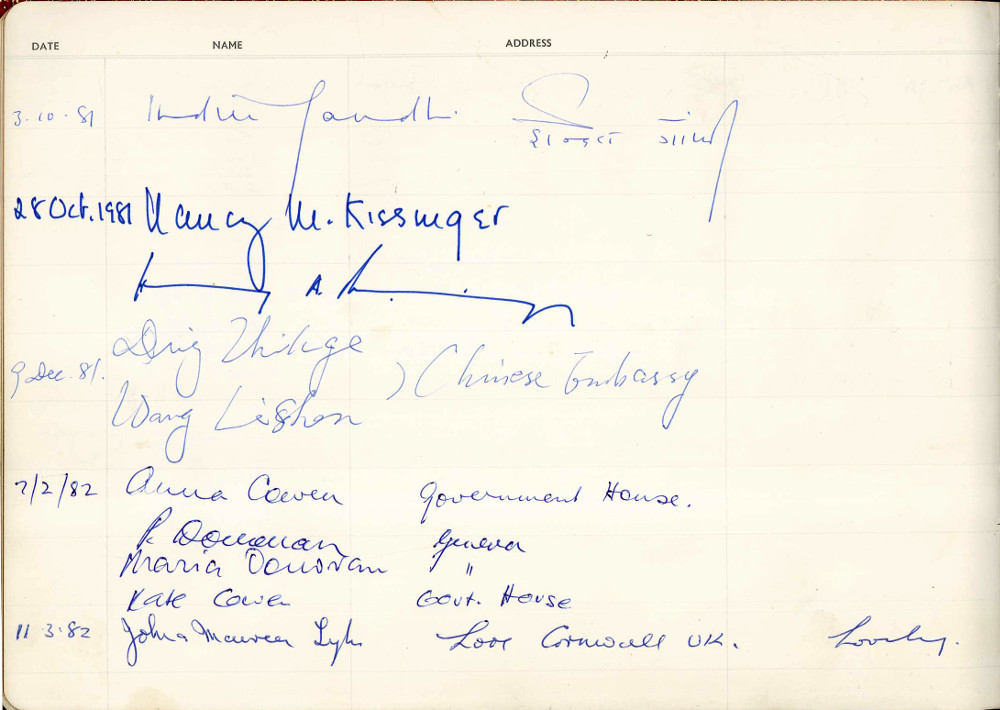 DATE NAME ADDRESS
3.10.81 Indira Gandhi इन्दिरा गांधी
28 Oct. 1981 Nancy M. Kissinger
Henry A. Kissinger
9 Dec. 81. Ding Zhikge ) Chinese Embassy
Wang LiShan
7/2/82 Anna Cowen Government House.
P. Donovan Geneva
Maria Donovan "
Kate Cowen Govt. House
11.3.82 John & Maureen Looe Cornwall UK. Lovely.